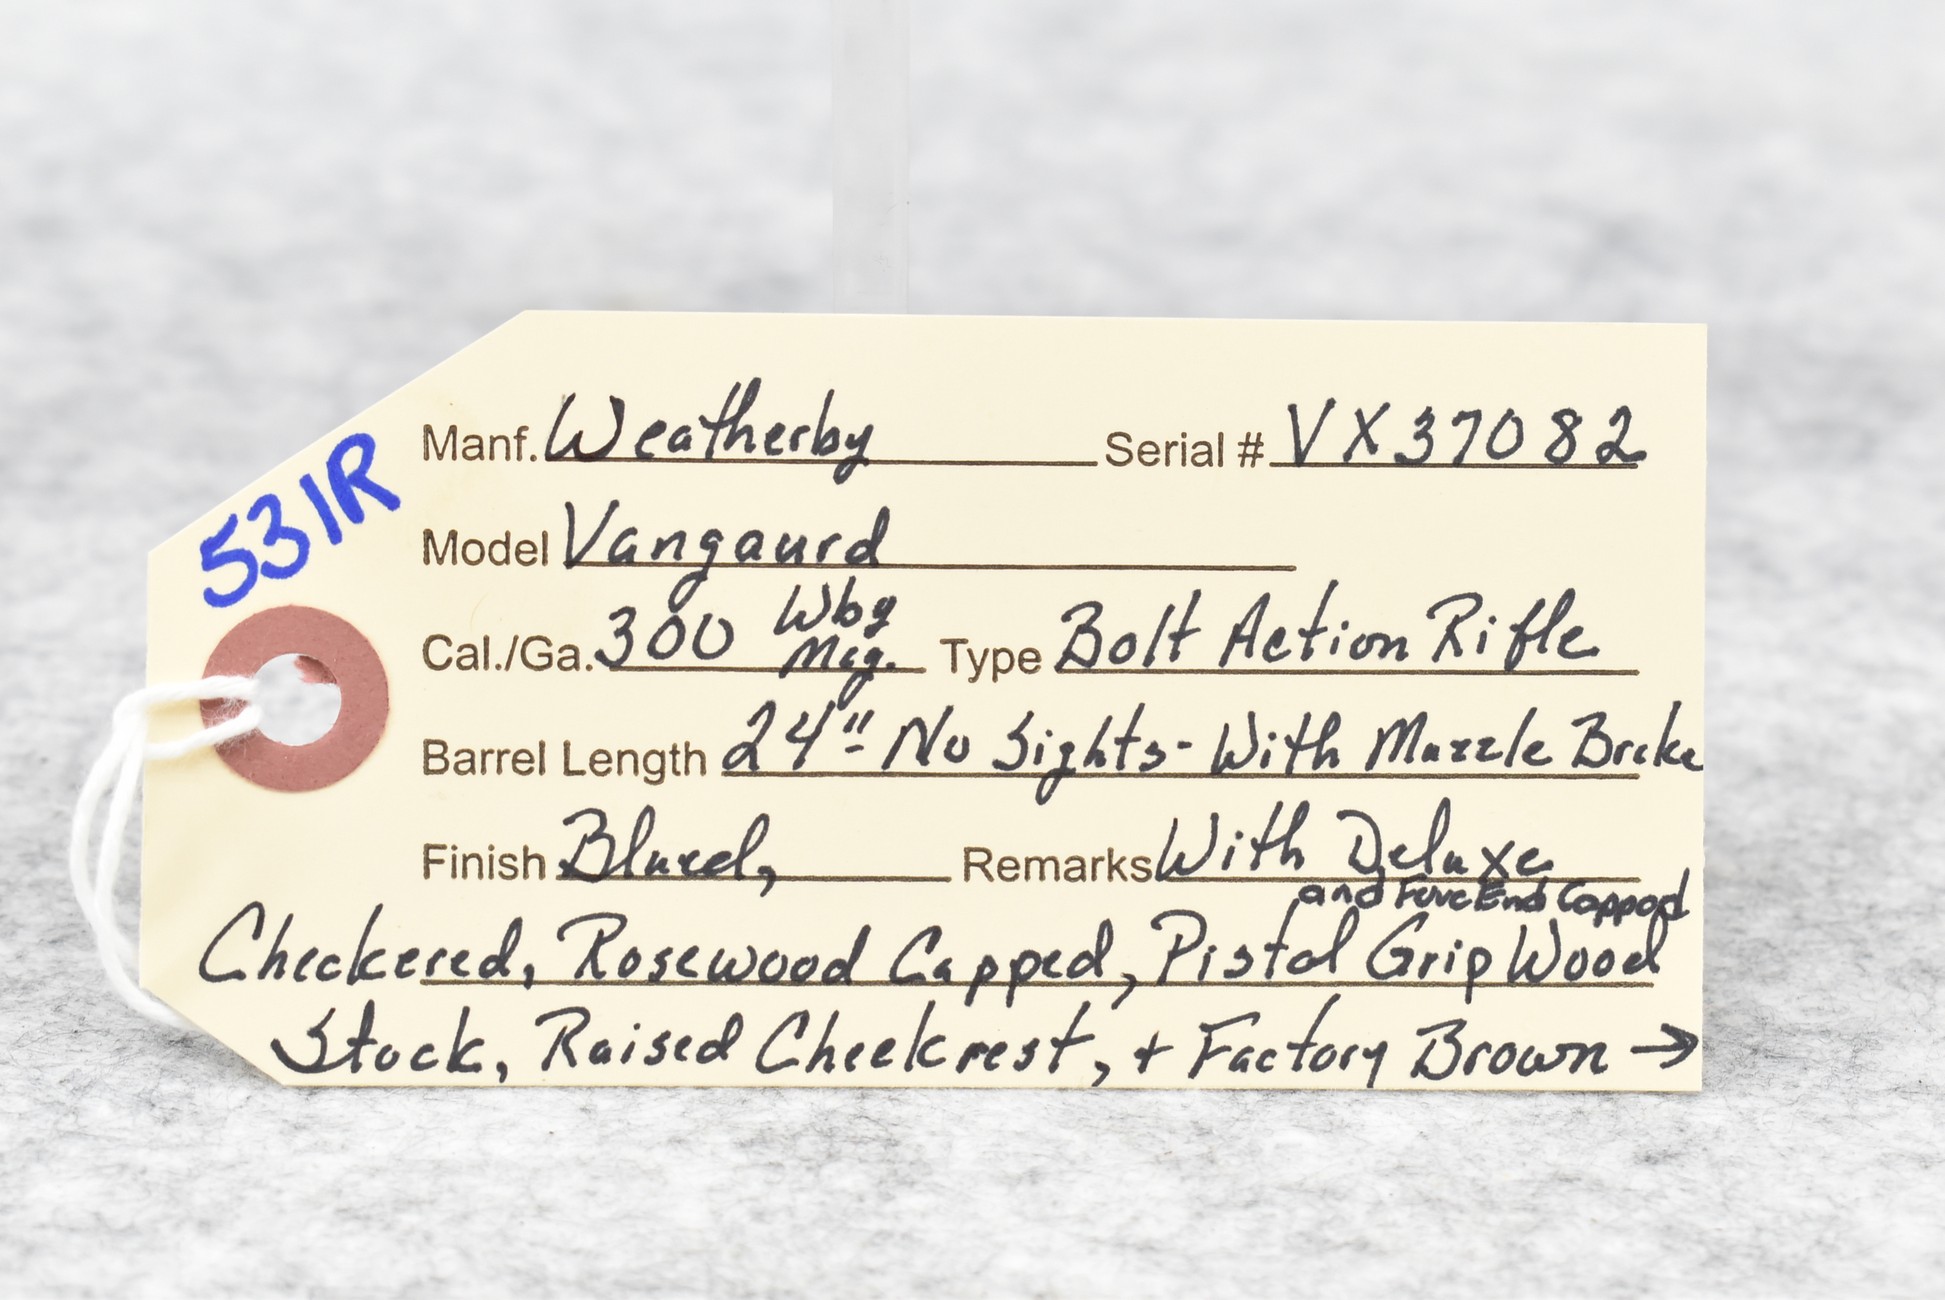 531R
Manf. Weatherby Serial # VX37082
Model Vangaurd
Cal./Ga. 300 Wby Mag. Type Bolt Action Rifle
Barrel Length 24" - No Sights - With Muzzle Brake
Finish Blued, Remarks With Deluxe
and ForeEnd Capped
Checkered, Rosewood Capped, Pistol Grip Wood
Stock, Raised Cheekrest, + Factory Brown →